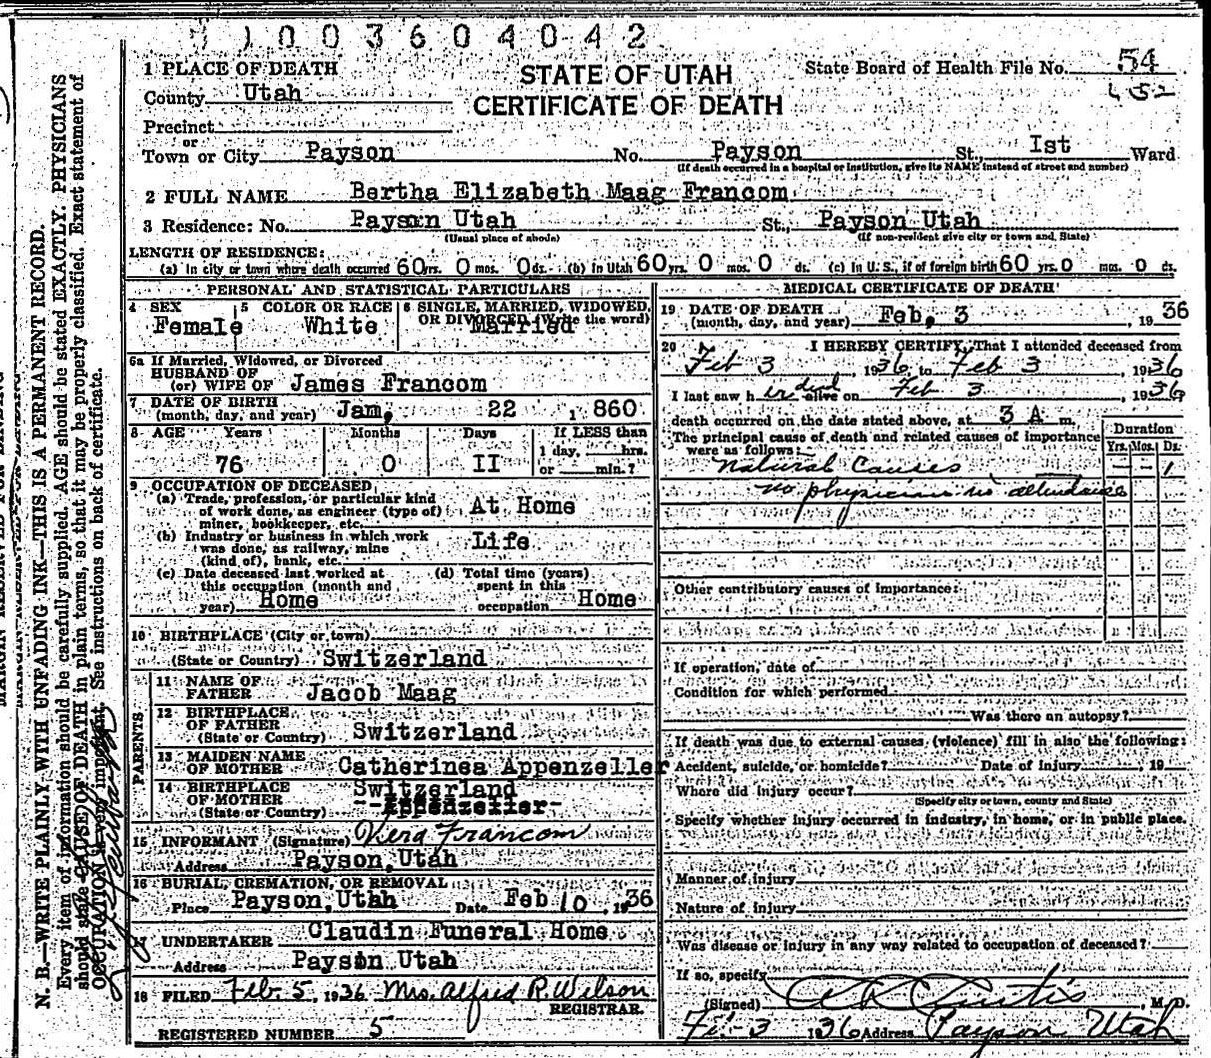 1003604042
1 PLACE OF DEATH
STATE OF UTAH
CERTIFICATE OF DEATH
State Board of Health File No. 54
452
County Utah
Precinct
or
Town or City Payson No. Payson St., Ist Ward
(If death occurred in a hospital or institution, give its NAME instead of street and number)
2 FULL NAME Bertha Elizabeth Maag Francom
3 Residence: No. Payson Utah St., Payson Utah
(Usual place of abode) (If non-resident give city or town and State)
LENGTH OF RESIDENCE:
(a) In city or town where death occurred 60 yrs. 0 mos. 0 ds. (b) In Utah 60 yrs. 0 mos. 0 ds. (c) In U. S., if of foreign birth 60 yrs. 0 mos. 0 ds.
PERSONAL AND STATISTICAL PARTICULARS
4 SEX Female
5 COLOR OR RACE White
6 SINGLE, MARRIED, WIDOWED, OR DIVORCED (Write the word) Married
6a If Married, Widowed, or Divorced
HUSBAND OF
(or) WIFE OF James Francom
7 DATE OF BIRTH
(month, day, and year) Jam, 22 1860
8 AGE Years Months Days If LESS than
1 day, hrs.
76 0 II or min.?
9 OCCUPATION OF DECEASED
(a) Trade, profession, or particular kind
of work done, as engineer (type of)
miner, bookkeeper, etc. At Home
(b) Industry or business in which work
was done, as railway, mine
(kind of), bank, etc. Life
(c) Date deceased last worked at
this occupation (month and
year) Home
(d) Total time (years)
spent in this
occupation Home
10 BIRTHPLACE (City or town)
(State or Country) Switzerland
PARENTS
11 NAME OF
FATHER Jacob Maag
12 BIRTHPLACE
OF FATHER
(State or Country) Switzerland
13 MAIDEN NAME
OF MOTHER Catherinea Appenzeller
14 BIRTHPLACE
OF MOTHER
(State or Country) Switzerland
Appenzeller
15 INFORMANT (Signature) Vera Francom
Address Payson, Utah
16 BURIAL, CREMATION, OR REMOVAL
Place Payson, Utah Date Feb 10, 1936
17 UNDERTAKER Claudin Funeral Home
Address Payson Utah
18 FILED Feb. 5, 1936 Mrs. Alfred R. Wilson
REGISTRAR.
REGISTERED NUMBER 5
MEDICAL CERTIFICATE OF DEATH
19 DATE OF DEATH
(month, day, and year) Feb, 3, 1936
20 I HEREBY CERTIFY, That I attended deceased from
Feb 3, 1936, to Feb 3, 1936
I last saw h er dead alive on Feb 3, 1936
death occurred on the date stated above, at 3 A m.
The principal cause of death and related causes of importance
were as follows:
Duration
Yrs. Mos. Ds.
Natural Causes - - 1
no physician in attendance
Other contributory causes of importance:
If operation, date of
Condition for which performed
Was there an autopsy?
If death was due to external causes (violence) fill in also the following:
Accident, suicide, or homicide? Date of injury, 19
Where did injury occur?
(Specify city or town, county and State)
Specify whether injury occurred in industry, in home, or in public place.
Manner of injury
Nature of injury
Was disease or injury in any way related to occupation of deceased?
If so, specify
(Signed) A R Curtis, M. D.
Feb-3 1936 Address Payson Utah
N. B.—WRITE PLAINLY WITH UNFADING INK—THIS IS A PERMANENT RECORD.
Every item of information should be carefully supplied. AGE should be stated EXACTLY. PHYSICIANS
should state CAUSE OF DEATH in plain terms, so that it may be properly classified. Exact statement of
OCCUPATION is very important. See instructions on back of certificate.